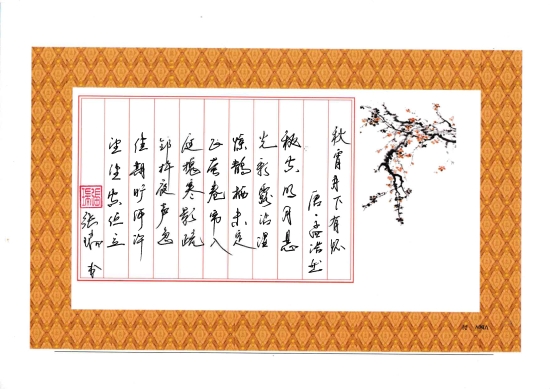 秋宵月下有怀
唐·孟浩然
秋空明月悬
光彩露沾湿
惊鹊栖未定
飞萤卷帘入
庭槐寒影疏
邻杵夜声急
佳期旷何许
望望空伫立
张